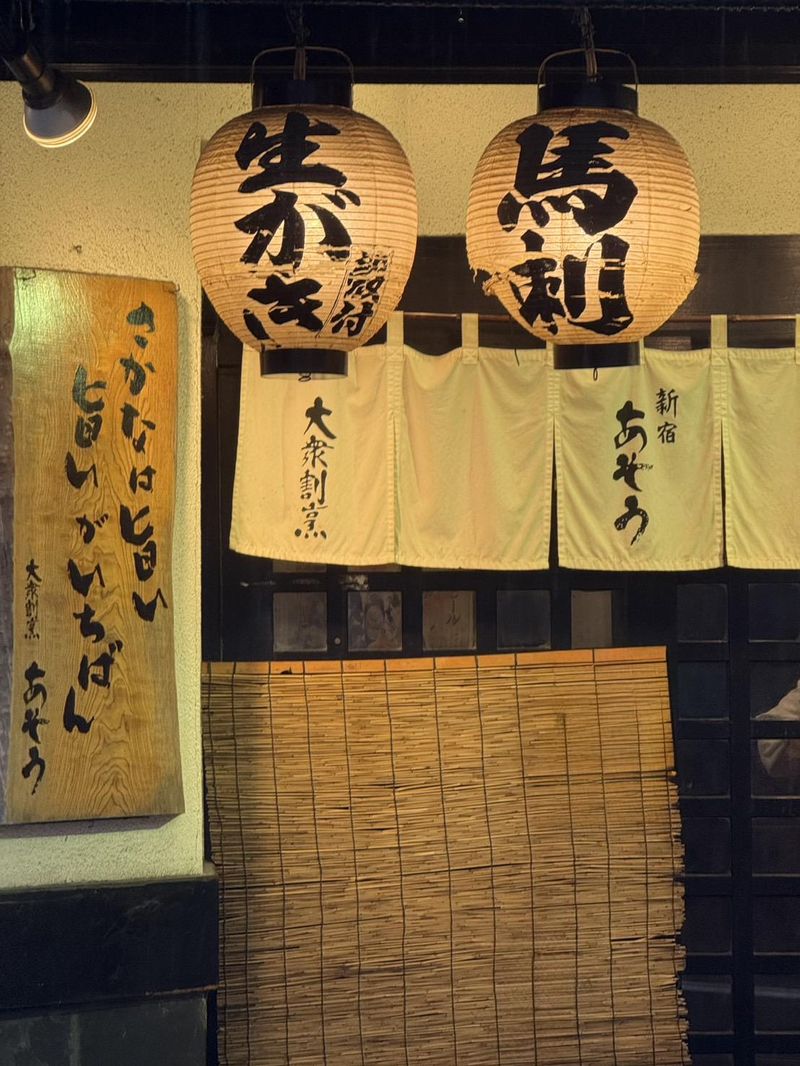 生がき
殻付
馬刺
さかなは旨い
旨いがいちばん
大衆割烹
あぞう
大衆割烹
新宿
あぞう